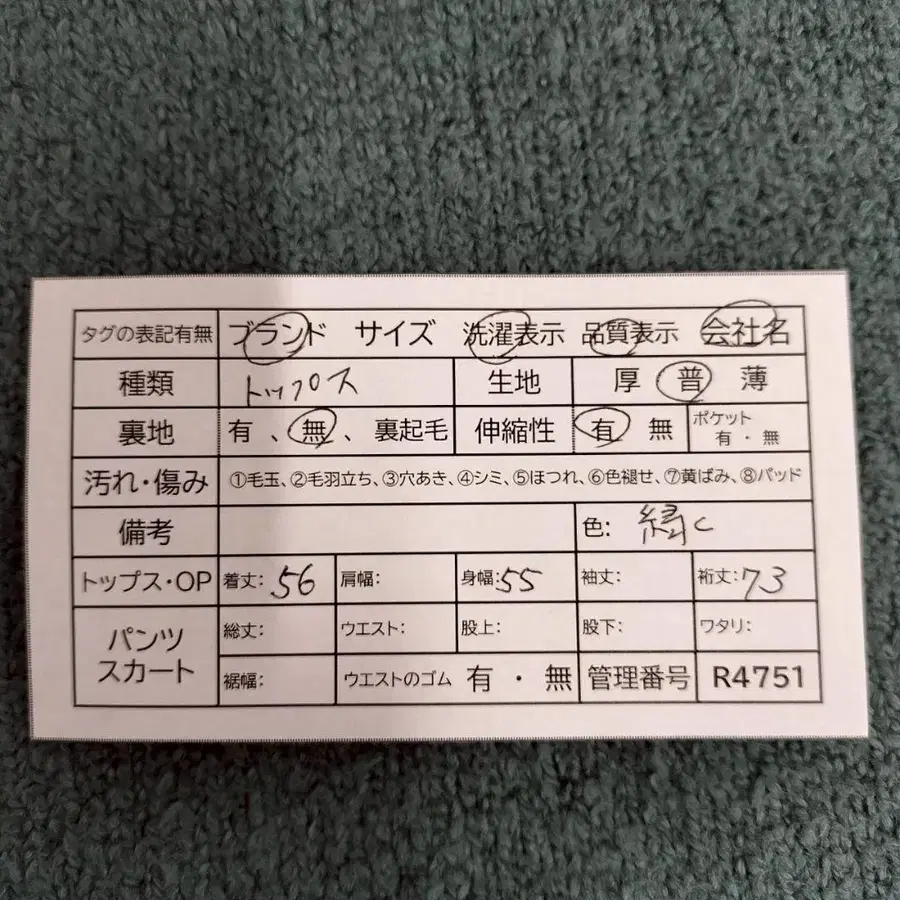 タグの表記有無 ブランド サイズ 洗濯表示 品質表示 会社名
種類 トップス 生地 厚 普 薄
裏地 有、無、裏起毛 伸縮性 有 無 ポケット 有・無
汚れ・傷み ①毛玉、②毛羽立ち、③穴あき、④シミ、⑤ほつれ、⑥色褪せ、⑦黄ばみ、⑧パッド
備考 色: 緑
トップス・OP 着丈: 56 肩幅: 身幅: 55 袖丈: 裄丈: 73
パンツ スカート 総丈: ウエスト: 股上: 股下: ワタリ:
裾幅: ウエストのゴム 有・無 管理番号 R4751